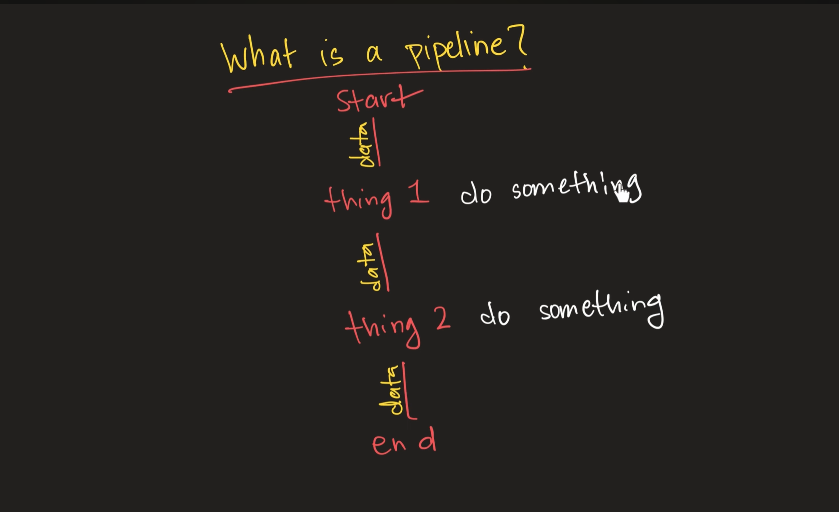 What is a pipeline?
start
data
thing 1 do something
data
thing 2 do something
data
end